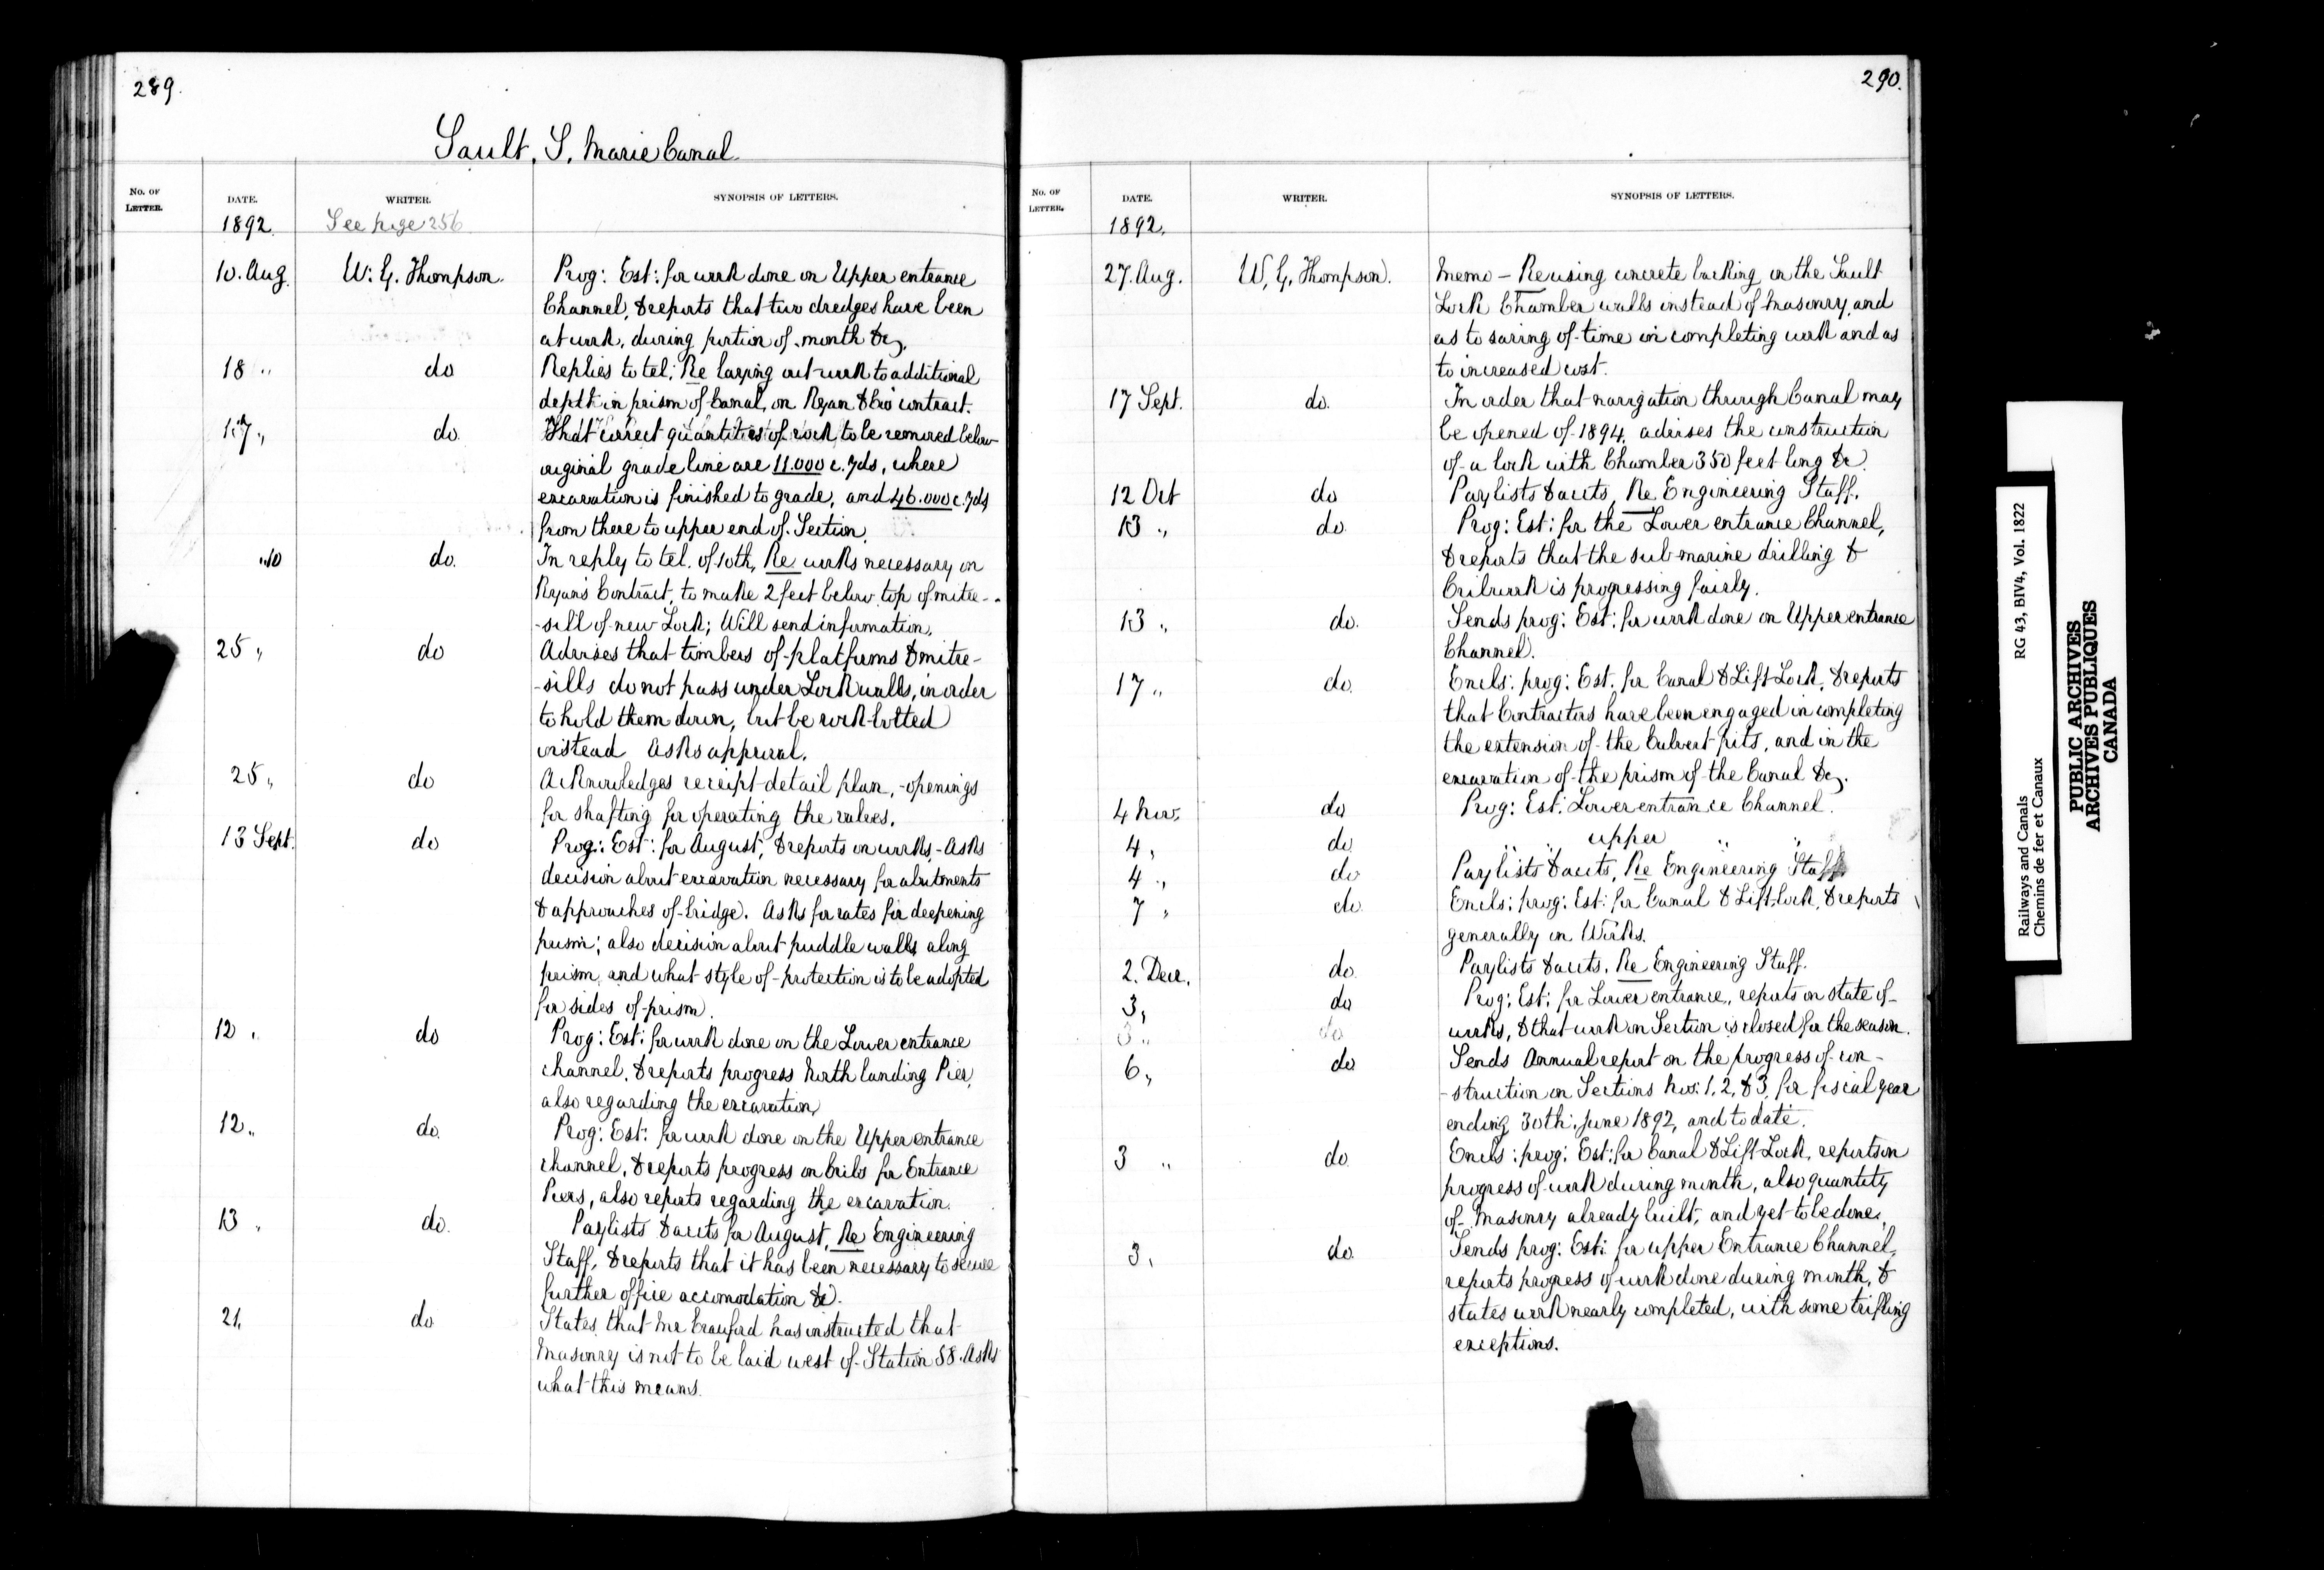 289.
Sault, S, Marie Canal.
No. OF LETTER.
DATE.
WRITER.
SYNOPSIS OF LETTERS.
1892. See page 256
10. Aug. W. G. Thompson. Prog: Est: for work done on Upper entrance
Channel, & reports that two dredges have been
at work, during portion of month &c,
18 " do Replies to tel; Re laying out work to additional
depth in prism of Canal, on Ryan & Co's contract.
17 " do. That correct quantities of rock, to be removed below
original grade line are 11.000 c. yds, where
excavation is finished to grade, and 46.000 c. yds
from there to upper end of Section.
"10 do. In reply to tel. of 10th, Re works necessary on
Ryan's Contract, to make 2 feet below top of mitre-
-sill of new Lock; Will send information.
25 " do Advises that timbers of platforms & mitre-
-sills do not pass under Lock walls, in order
to hold them down, but be rock-bolted
instead Asks approval.
25 " do Acknowledges receipt detail plan, - openings
for shafting for operating the valves.
13 Sept. do Prog: Est: for August, & reports on works, - Asks
decision about excavation necessary for abutments
& approaches of bridge. Asks for rates for deepening
prism; also decision about puddle walls along
prism, and what style of protection is to be adopted
for sides of prism.
12 " do Prog: Est: for work done on the Lower entrance
channel, & reports progress North landing Pier,
also regarding the excavation,
12 " do. Prog: Est: for work done on the Upper entrance
channel, & reports progress on Cribs for Entrance
Piers, also reports regarding the excavation.
13 " do. Paylists & accts for August, Re Engineering
Staff, & reports that it has been necessary to secure
further office accomodation &c.
21, do States that Mr Crawford has instructed that
Masonry is not to be laid west of Station 58. Asks
what this means.
290.
No. OF LETTER.
DATE.
WRITER.
SYNOPSIS OF LETTERS.
1892.
27. Aug. W, G, Thompson. Memo - Re using concrete backing in the Sault
Lock Chamber walls instead of Masonry, and
as to saving of time in completing work and as
to increased cost.
17 Sept. do. In order that navigation through Canal may
be opened of 1894, advises the construction
of a lock with Chamber 350 feet long &c.
12 Oct do Paylists & accts, Re Engineering Staff.
13 " do Prog: Est: for the Lower entrance Channel,
& reports that the sub-marine drilling &
Cribwork is progressing fairly.
13 " do. Sends prog: Est: for work done on Upper entrance
Channel.
17 " do. Encls: prog: Est. for Canal & Lift-Lock, & reports
that Contractors have been engaged in completing
the extension of the Culvert pits, and in the
excavation of the prism of the Canal &c,.
4 Nov. do Prog: Est: Lower entrance Channel.
4 " do " " upper " "
4 " do Paylists & accts, Re Engineering Staff
7 " do. Encls: prog: Est: for Canal & Lift-Lock, & reports
generally on Works.
2. Dec. do. Paylists & accts. Re Engineering Staff.
3, do Prog: Est: for Lower entrance, reports on state of
3 " do works, & that work on Section is closed for the season.
6, do Sends Annual report on the progress of con-
-struction on Sections Nos: 1, 2, & 3, for fiscal year
ending 30th, June 1892, and to date.
3 " do. Encls: prog: Est: for Canal & Lift-Lock, reports on
progress of work during month, also quantity
of Masonry already built, and yet to be done.
3, do. Sends prog: Est: for upper Entrance Channel,
reports progress of work done during month, &
states work nearly completed, with some trifling
exceptions.
Railways and Canals RG 43, BIV4, Vol. 1822
Chemins de fer et Canaux
PUBLIC ARCHIVES
ARCHIVES PUBLIQUES
CANADA